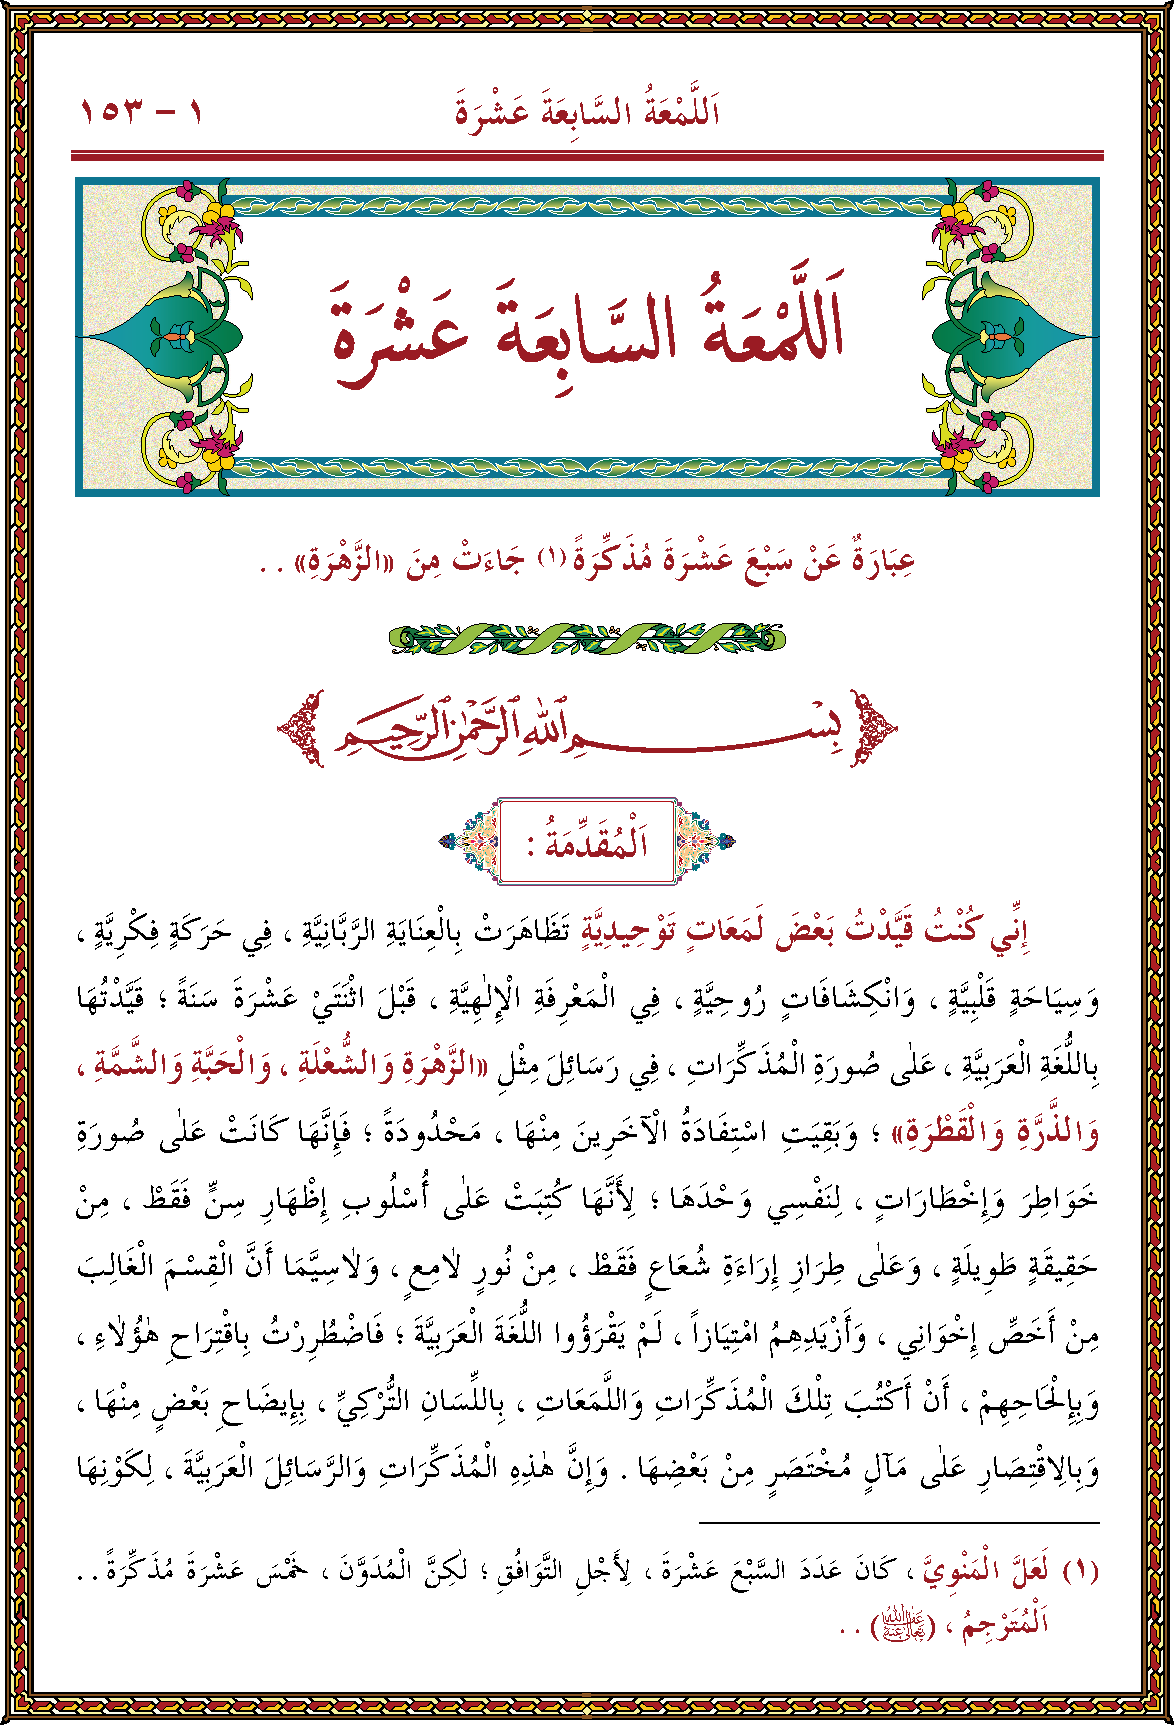 اَللَّمْعَةُ السَّابِعَةَ عَشْرَةَ ١ – ١٥٣
اَللَّمْعَةُ السَّابِعَةَ عَشْرَةَ
عِبَارَةٌ عَنْ سَبْعَ عَشْرَةَ مُذَكِّرَةً (١) جَاءَتْ مِنَ «الزَّهْرَةِ» . .
بِسْمِ اللّٰهِ الرَّحْمٰنِ الرَّحِيمِ
اَلْمُقَدِّمَةُ :
إِنِّي كُنْتُ قَيَّدْتُ بَعْضَ لَمَعَاتٍ تَوْحِيدِيَّةٍ تَظَاهَرَتْ بِالْعِنَايَةِ الرَّبَّانِيَّةِ ، فِي حَرَكَةٍ فِكْرِيَّةٍ ،
وَسِيَاحَةٍ قَلْبِيَّةٍ ، وَانْكِشَافَاتٍ رُوحِيَّةٍ ، فِي الْمَعْرِفَةِ الْإِلٰهِيَّةِ ، قَبْلَ اثْنَتَيْ عَشْرَةَ سَنَةً ؛ قَيَّدْتُهَا
بِاللُّغَةِ الْعَرَبِيَّةِ ، عَلٰى صُورَةِ الْمُذَكِّرَاتِ ، فِي رَسَائِلَ مِثْلِ «الزَّهْرَةِ وَالشُّعْلَةِ ، وَالْحَبَّةِ وَالشَّمَّةِ ،
وَالذَّرَّةِ وَالْقَطْرَةِ» ؛ وَبَقِيَتِ اسْتِفَادَةُ الْآخَرِينَ مِنْهَا ، مَحْدُودَةً ؛ فَإِنَّهَا كَانَتْ عَلٰى صُورَةِ
خَوَاطِرَ وَإِخْطَارَاتٍ ، لِنَفْسِي وَحْدَهَا ؛ لِأَنَّهَا كُتِبَتْ عَلٰى أُسْلُوبِ إِظْهَارِ سِنٍّ فَقَطْ ، مِنْ
حَقِيقَةٍ طَوِيلَةٍ ، وَعَلٰى طِرَازِ إِرَاءَةِ شُعَاعٍ فَقَطْ ، مِنْ نُورٍ لَامِعٍ ، وَلَاسِيَّمَا أَنَّ الْقِسْمَ الْغَالِبَ
مِنْ أَخَصِّ إِخْوَانِي ، وَأَزْيَدِهِمُ امْتِيَازاً ، لَمْ يَقْرَؤُوا اللُّغَةَ الْعَرَبِيَّةَ ؛ فَاضْطُرِرْتُ بِاقْتِرَاحِ هٰؤُلَاءِ ،
وَبِإِلْحَاحِهِمْ ، أَنْ أَكْتُبَ تِلْكَ الْمُذَكِّرَاتِ وَاللَّمَعَاتِ ، بِاللِّسَانِ التُّرْكِيِّ ، بِإِيضَاحِ بَعْضٍ مِنْهَا ،
وَبِالِاقْتِصَارِ عَلٰى مَآلٍ مُخْتَصَرٍ مِنْ بَعْضِهَا . وَإِنَّ هٰذِهِ الْمُذَكِّرَاتِ وَالرَّسَائِلَ الْعَرَبِيَّةَ ، لِكَوْنِهَا
(١) لَعَلَّ الْمَنْوِيَّ ، كَانَ عَدَدَ السَّبْعَ عَشْرَةَ ، لِأَجْلِ التَّوَافُقِ ؛ لٰكِنَّ الْمُدَوَّنَ ، خَمْسَ عَشْرَةَ مُذَكِّرَةً . .
اَلْمُتَرْجِمُ ، (رضي الله تعالى عنه) . .